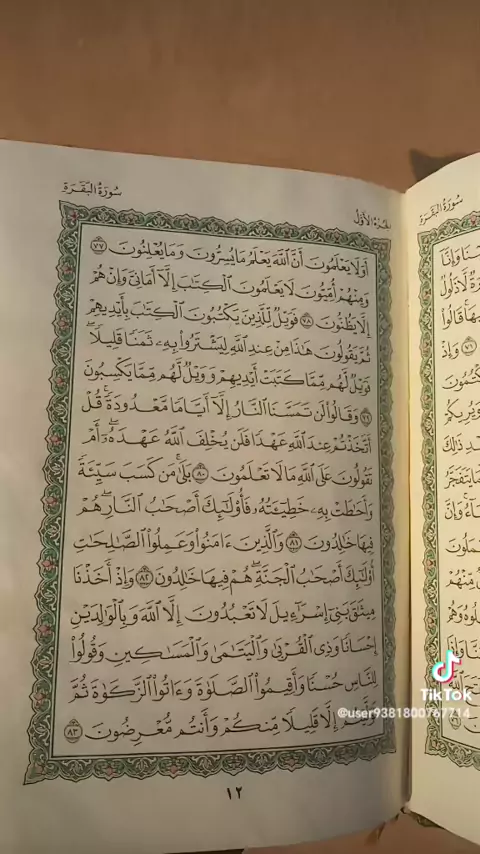 سُورَةُ البَقَرَةِ
الجُزْءُ الأَوَّلُ
أَوَلَا يَعْلَمُونَ أَنَّ اللَّهَ يَعْلَمُ مَا يُسِرُّونَ وَمَا يُعْلِنُونَ ٧٧
وَمِنْهُمْ أُمِّيُّونَ لَا يَعْلَمُونَ الْكِتَابَ إِلَّا أَمَانِيَّ وَإِنْ هُمْ
إِلَّا يَظُنُّونَ ٧٨ فَوَيْلٌ لِّلَّذِينَ يَكْتُبُونَ الْكِتَابَ بِأَيْدِيهِمْ
ثُمَّ يَقُولُونَ هَٰذَا مِنْ عِندِ اللَّهِ لِيَشْتَرُوا بِهِ ثَمَنًا قَلِيلًا
فَوَيْلٌ لَّهُم مِّمَّا كَتَبَتْ أَيْدِيهِمْ وَوَيْلٌ لَّهُم مِّمَّا يَكْسِبُونَ
٧٩ وَقَالُوا لَن تَمَسَّنَا النَّارُ إِلَّا أَيَّامًا مَّعْدُودَةً قُلْ
أَتَّخَذْتُمْ عِندَ اللَّهِ عَهْدًا فَلَن يُخْلِفَ اللَّهُ عَهْدَهُ أَمْ
تَقُولُونَ عَلَى اللَّهِ مَا لَا تَعْلَمُونَ ٨٠ بَلَىٰ مَن كَسَبَ سَيِّئَةً
وَأَحَاطَتْ بِهِ خَطِيئَتُهُ فَأُولَٰئِكَ أَصْحَابُ النَّارِ هُمْ
فِيهَا خَالِدُونَ ٨١ وَالَّذِينَ ءَامَنُوا وَعَمِلُوا الصَّالِحَاتِ
أُولَٰئِكَ أَصْحَابُ الْجَنَّةِ هُمْ فِيهَا خَالِدُونَ ٨٢ وَإِذْ أَخَذْنَا
مِيثَاقَ بَنِي إِسْرَائِيلَ لَا تَعْبُدُونَ إِلَّا اللَّهَ وَبِالْوَالِدَيْنِ
إِحْسَانًا وَذِي الْقُرْبَىٰ وَالْيَتَامَىٰ وَالْمَسَاكِينِ وَقُولُوا
لِلنَّاسِ حُسْنًا وَأَقِيمُوا الصَّلَاةَ وَءَاتُوا الزَّكَاةَ ثُمَّ
تَوَلَّيْتُمْ إِلَّا قَلِيلًا مِّنكُمْ وَأَنتُم مُّعْرِضُونَ ٨٣
١٢
سُورَةُ البَقَرَةِ
TikTok
@user9381800767714